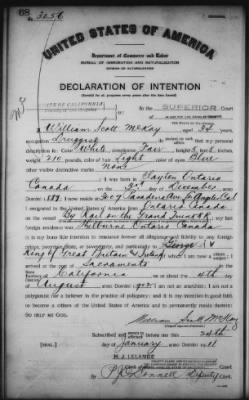 68
No. 3256
UNITED STATES OF AMERICA
Department of Commerce and Labor
BUREAU OF IMMIGRATION AND NATURALIZATION
DIVISION OF NATURALIZATION
DECLARATION OF INTENTION
(Invalid for all purposes seven years after the date hereof)
STATE OF CALIFORNIA
In the SUPERIOR Court
I, William Scott McKay, aged 32 years,
occupation Druggist, do declare on oath that my personal
description is: Color White, complexion Fair, height 5 feet 8 inches,
weight 210 pounds, color of hair Light, color of eyes Blue
other visible distinctive marks None
I was born in Clayton Ontario
Canada on the 2nd day of December, anno
Domini 188; I now reside at
I emigrated to the United States of America from Ontario Canada
on the By Rail on the Grand Trunk R.R.; my last
foreign residence was Melburne Ontario Canada
It is my bona fide intention to renounce forever all allegiance and fidelity to any foreign
prince, potentate, state, or sovereignty, and particularly to George V
King of Great Britain & Ireland, of which I am now a subject; I
arrived at the of Sacramento, in the
State of California on or about the day
of August, anno Domini; I am not an anarchist; I am not a
polygamist nor a believer in the practice of polygamy; and it is my intention in good faith
to become a citizen of the United States of America and to permanently reside therein:
SO HELP ME GOD.
William Scott McKay
Subscribed and sworn to before me this 24th
[SEAL.] day of January, anno Domini 1911
H. J. LELANDE